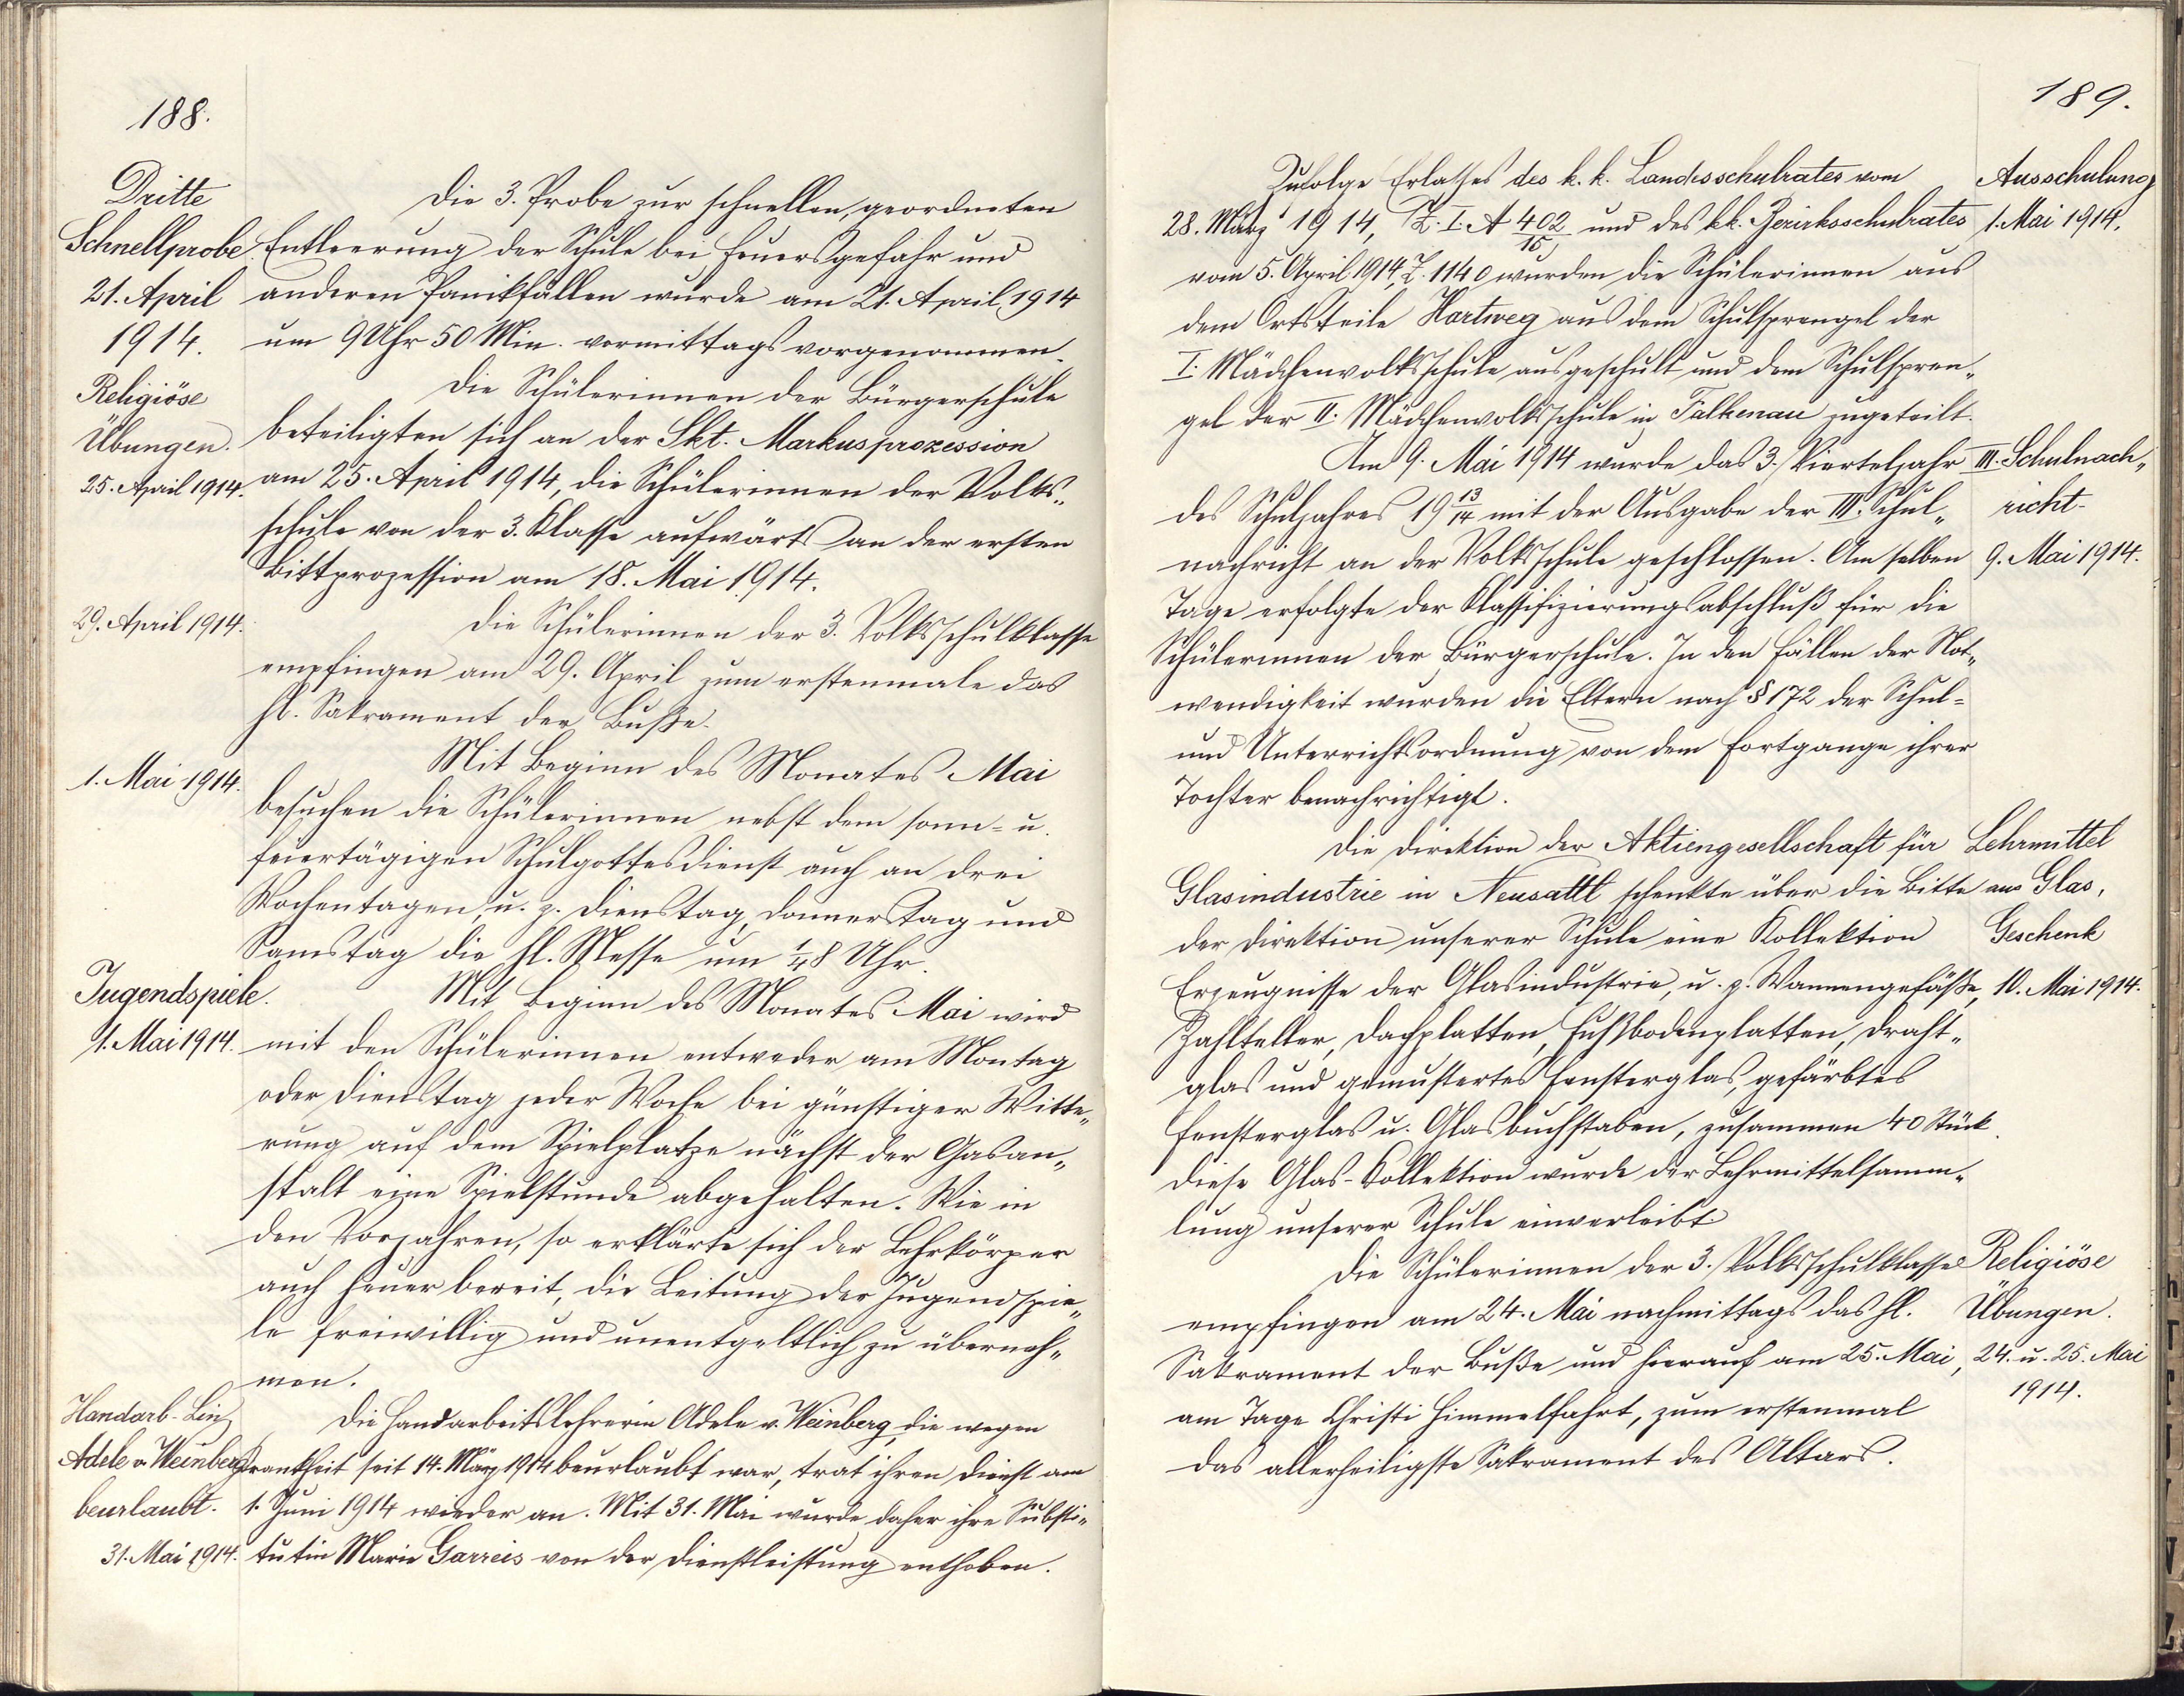 188.
Dritte
Schnellprobe
21. April
1914.
Die 3. Probe zur schnellen, geordneten
Entleerung der Schule bei Feuersgefahr und
anderen Panikfällen wurde am 21. April 1914
um 9 Uhr 50 Min. vormittags vorgenommen.
Religiöse
Übungen.
25. April 1914.
Die Schülerinnen der Bürgerschule
beteiligten sich an der Skt. Markusprozession
am 25. April 1914, die Schülerinnen der Volks„
schule von der 3. Klasse aufwärts an der ersten
Bittprozession am 18. Mai 1914.
29. April 1914.
Die Schülerinnen der 3. Volksschulklasse
empfingen am 29. April zum erstenmale das
hl. Sakrament der Buße.
1. Mai 1914.
Mit Beginn des Monates Mai
besuchen die Schülerinnen nebst dem sonn= u.
feiertägigen Schulgottesdienst auch an drei
Wochentagen, u. z. Dienstag, Donnerstag und
Samstag die hl. Messe um 1/4 8 Uhr.
Jugendspiele.
1. Mai 1914.
Mit Beginn des Monates Mai wird
mit den Schülerinnen entweder am Montag
oder Dienstag jeder Woche bei günstiger Witte„
rung auf dem Spielplatze nächst der Gasan„
stalt eine Spielstunde abgehalten. Wie in
den Vorjahren, so erklärte sich der Lehrkörper
auch heuer bereit, die Leitung der Jugendspie„
le freiwillig und unentgeltlich zu überneh„
men.
Handarb.-Lin
Adele v. Weinberg
beurlaubt.
31. Mai 1914.
Die Handarbeitslehrerin Adele v. Weinberg, die wegen
Krankheit seit 14. März 1914 beurlaubt war, trat ihren Dienst am
1. Juni 1914 wieder an. Mit 31. Mai wurde daher ihre Substi„
tutin Marie Garreis von der Dienstleistung enthoben.
189.
Zufolge Erlasses des k. k. Landesschulrates vom
28. März 1914, Z. I. A 402/15 und des k.k. Bezirksschulrates
vom 5. April 1914, Z. 1140 wurden die Schülerinnen aus
dem Ortsteile Hartweg aus dem Schulsprengel der
I. Mädchenvolksschule ausgeschult und dem Schulspren„
gel der II. Mädchenvolksschule in Falkenau zugeteilt.
Ausschulung
1. Mai 1914.
Am 9. Mai 1914 wurde das 3. Vierteljahr
des Schuljahres 19 13/14 mit der Ausgabe der III. Schul„
nachricht an der Volksschule geschlossen. Am selben
Tage erfolgte der Klassifizierungsabschluß für die
Schülerinnen der Bürgerschule. In den Fällen der Not„
wendigkeit wurden die Eltern nach § 172 der Schul=
und Unterrichtsordnung von dem Fortgange ihrer
Tochter benachrichtigt.
III. Schulnach„
richt.
9. Mai 1914.
Die Direktion der Aktiengesellschaft für
Glasindustrie in Neusattl schenkte über die Bitte
der Direktion unserer Schule eine Kollektion
Erzeugnisse der Glasindustrie, u. z. Wannengefäße,
Zahlteller, Dachplatten, Fußbodenplatten, Draht„
glas und gemustertes Fensterglas, gefärbtes
Fensterglas u. Glasbuchstaben, zusammen 40 Stück.
Diese Glas-Kollektion wurde der Lehrmittelsamm„
lung unserer Schule einverleibt.
Lehrmittel
aus Glas,
Geschenk
10. Mai 1914.
Die Schülerinnen der 3. Volksschulklasse
empfingen am 24. Mai nachmittags das hl.
Sakrament der Buße und hierauf am 25. Mai,
am Tage Christi Himmelfahrt, zum erstenmal
das allerheiligste Sakrament des Altars.
Religiöse
Übungen.
24. u. 25. Mai
1914.